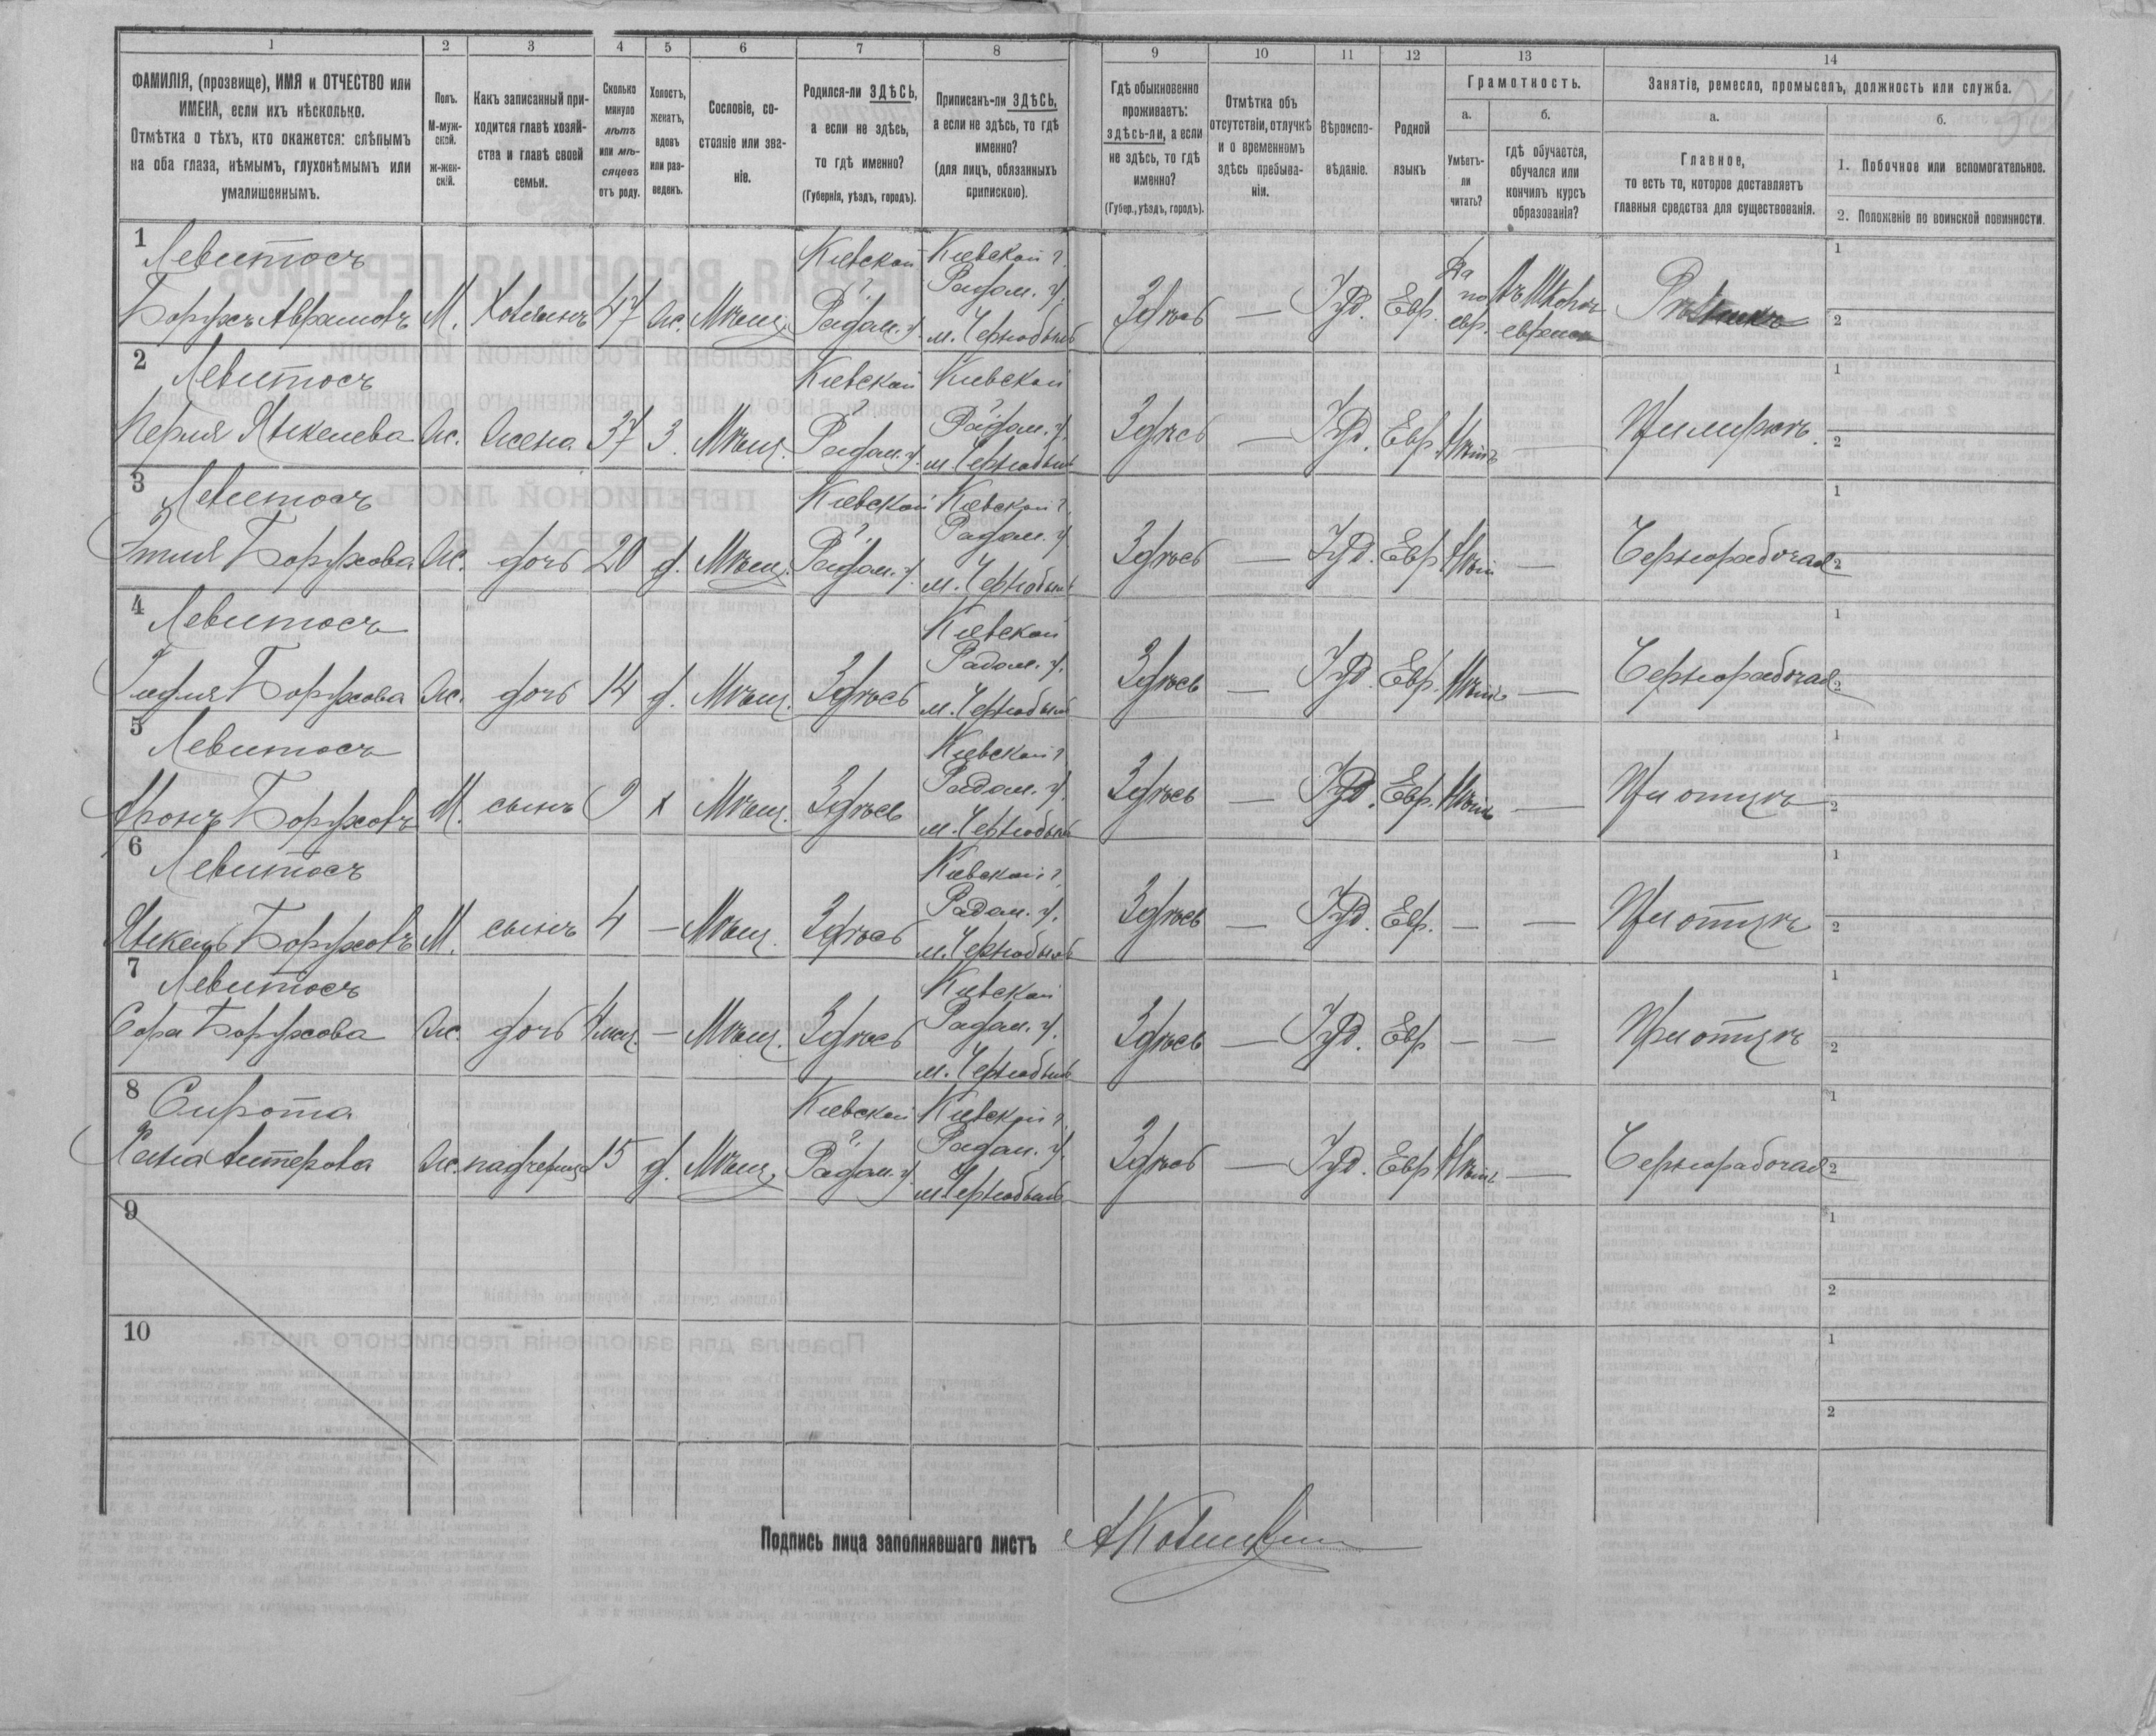 1 2 3 4 5 6 7 8 9 10 11 12 13 14
ФАМИЛІЯ, (прозвище), ИМЯ и ОТЧЕСТВО или
ИМЕНА, если ихъ нѣсколько.
Отмѣтка о тѣхъ, кто окажется: слѣпымъ
на оба глаза, нѣмымъ, глухонѣмымъ или
умалишеннымъ.
Полъ.
М-муж-
ской.
ж-жен-
скій.
Какъ записанный при-
ходится главѣ хозяй-
ства и главѣ своей
семьи.
Сколько
минуло
лѣтъ
или мѣ-
сяцевъ
отъ роду.
Холостъ,
женатъ,
вдовъ
или раз-
веденъ.
Сословіе, со-
стояніе или зва-
ніе.
Родился-ли ЗДѢСЬ,
а если не здѣсь,
то гдѣ именно?
(Губернія, уѣздъ, городъ).
Приписанъ-ли ЗДѢСЬ,
а если не здѣсь, то гдѣ
именно?
(для лицъ, обязанныхъ
припискою).
Гдѣ обыкновенно
проживаетъ:
здѣсь-ли, а если
не здѣсь, то гдѣ
именно?
(Губер., уѣздъ, городъ).
Отмѣтка объ
отсутствіи, отлучкѣ
и о временномъ
здѣсь пребыва-
ніи.
Вѣроиспо-
вѣданіе.
Родной
языкъ
Грамотность.
а.
Умѣетъ-
ли
читать?
б.
гдѣ обучается,
обучался или
кончилъ курсъ
образованія?
Занятіе, ремесло, промыселъ, должность или служба.
а.
Главное,
то есть то, которое доставляетъ
главныя средства для существованія.
б.
1. Побочное или вспомогательное.
2. Положеніе по воинской повинности.
1 Левитосъ Кіевской Кіевской г.
г. Радом. у. Да
Борухъ Аврамовъ М. Хозяинъ 47 ж. Мѣщ. Радом. у. м. Чернобыль Здѣсь — Іуд. Евр. по евр. Въ школѣ еврейск 1
2
2 Левитосъ Кіевской Кіевской
г. Радом. у.
Перля Янкелева Ж. Жена 37 З. Мѣщ. Радом. у. м. Чернобыль Здѣсь — Іуд. Евр. Нѣтъ — При мужѣ 1
2
3 Левитосъ Кіевской Кіевской г.
г. Радом. у.
Этля Борухова Ж. дочь 20 д. Мѣщ. Радом. у. м. Чернобыль Здѣсь — Іуд. Евр Нѣтъ — Чернорабочая 1
2
4 Левитосъ Кіевской
Радом. у.
Борухова Ж. дочь 14 д. Мѣщ. Здѣсь м. Чернобыль Здѣсь — Іуд. Евр. Нѣтъ — Чернорабочая 1
2
5 Левитосъ Кіевской г.
Радом. у.
Аронъ Боруховъ М. сынъ 9 х Мѣщ. Здѣсь м. Чернобыль Здѣсь — Іуд. Евр. Нѣтъ — При отцѣ 1
2
6 Левитосъ Кіевской г.
Радом. у.
Янкель Боруховъ М. сынъ 4 — Мѣщ. Здѣсь м. Чернобыль Здѣсь — Іуд. Евр. — — При отцѣ 1
2
7 Левитосъ Кіевской
Радом. у.
Сора Борухова Ж. дочь 4 мѣс. — Мѣщ. Здѣсь м. Чернобыль Здѣсь — Іуд. Евр — — При отцѣ 1
2
8 Сирота Кіевской Кіевской г.
г. Радом. у.
Хана Ж. падчерица 15 д. Мѣщ. Радом. у. м. Чернобыль Здѣсь — Іуд. Евр Нѣтъ — Чернорабочая 1
2
9 1
2
10 1
2
Подпись лица заполнявшаго листъ